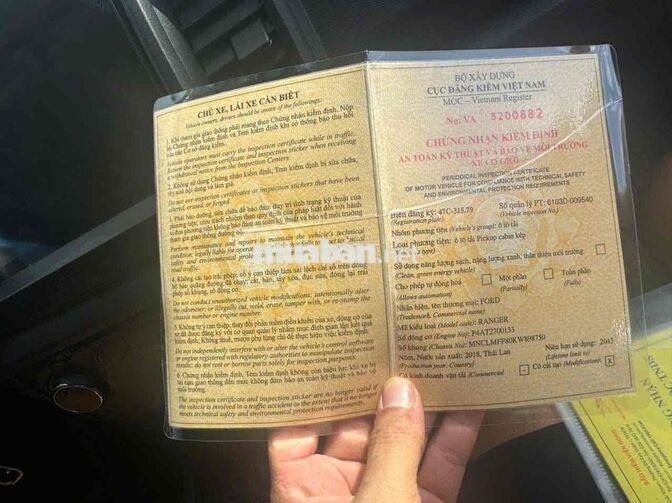 CHỦ XE, LÁI XE CẦN BIẾT
Vehicle owners, drivers should be aware of the followings:
1. Khi tham gia giao thông phải mang theo Chứng nhận kiểm định. Nộp
lại Chứng nhận kiểm định và Tem kiểm định khi có thông báo thu hồi
của các Cơ sở đăng kiểm.
Vehicle operators must carry the inspection certificate while in traffic.
Return the inspection certificate and inspection sticker when receiving
a withdrawal notice from the Inspection Centers.
2. Không sử dụng Chứng nhận kiểm định, Tem kiểm định bị sửa chữa,
tẩy xoá nội dung và làm giả.
Do not use inspection certificates or inspection stickers that have been
altered, erased, or forged.
3. Phải bảo dưỡng, sửa chữa để bảo đảm duy trì tình trạng kỹ thuật của
phương tiện; chịu trách nhiệm theo quy định của pháp luật đối với hành
vi đưa phương tiện không bảo đảm an toàn kỹ thuật và bảo vệ môi trường
tham gia giao thông đường bộ.
Perform maintenance and repairs to maintain the vehicle's technical
condition; legally liable for operating vehicle fails to meet technical
safety and environmental protection
road traffic.
4. Không cải tạo trái phép; cố ý can thiệp làm sai lệch chỉ số trên đồng
hồ báo quãng đường đã chạy; cắt, hàn, tẩy xóa, đục sửa, đóng lại trái
phép số khung, số động cơ.
Do not conduct unauthorized vehicle modifications; intentionally alter
the odometer; or illegally cut, weld, erase, tamper with, or re-stamp the
chassis number or engine number.
5. Không tự ý can thiệp, thay đổi phần mềm điều khiển của xe, động cơ của
xe đã được đăng ký với cơ quan quản lý nhằm mục đích gian lận kết quả
kiểm định; Không thuê, mượn phụ tùng chỉ để thực hiện việc kiểm định.
Do not independently interfere with or alter the vehicle's control software
or engine registered with regulatory authorities to manipulate inspection
results; do not rent or borrow parts solely for inspection purposes.
6. Chứng nhận kiểm định, Tem kiểm định không còn hiệu lực: khi xe bị
tai nạn giao thông đến mức không đảm bảo an toàn kỹ thuật và bảo vệ
môi trường.
The inspection certificate and inspection sticker are no longer valid if
the vehicle is involved in a traffic accident to the extent that it no longer
meets technical safety and environmental protection requirements.
BỘ XÂY DỰNG
CỤC ĐĂNG KIỂM VIỆT NAM
MOC – Vietnam Register
No: VA 3200882
CHỨNG NHẬN KIỂM ĐỊNH
AN TOÀN KỸ THUẬT VÀ BẢO VỆ MÔI TRƯỜNG
XE CƠ GIỚI
PERIODICAL INSPECTION CERTIFICATE
OF MOTOR VEHICLE FOR COMPLIANCE WITH TECHNICAL SAFETY
AND ENVIRONMENTAL PROTECTION REQUIREMENTS
Biển đăng ký: 47C-315.79 Số quản lý PT: 6103D-009540
(Registration plate) (Vehicle inspection No.)
Nhóm phương tiện: ô tô tải
Loại phương tiện: ô tô tải Pickup cabin kép
Sử dụng năng lượng sạch, năng lượng xanh, thân thiện môi trường
(Clean, green energy vehicle)
Cho phép tự động hoá Một phần Toàn phần
(Allows automation) (Partially) (Fully)
Nhãn hiệu, tên thương mại: FORD
(Trademark, Commercial name)
Mã kiểu loại (Model code): RANGER
Số động cơ (Engine No): P4AT2700133
Số khung (Chassis No): MNCLMFF80KW898750
Năm, Nước sản xuất: 2018, Thái Lan Niên hạn sử dụng: 2043
(Production year, Country) (Lifetime limit to)
Có kinh doanh vận tải (Commercial - Có cải tạo (Modification) X
muaban.net